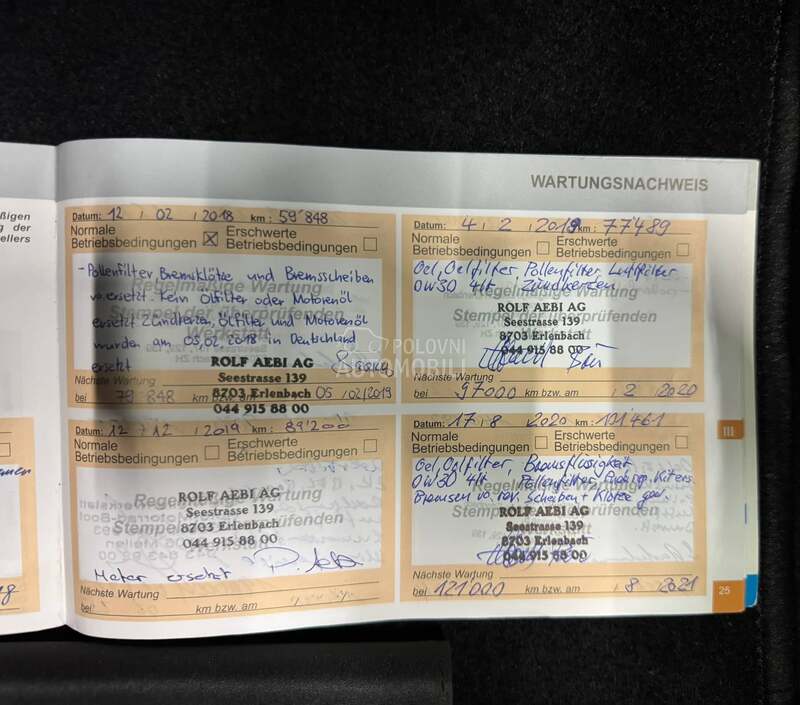 ßigen
g der
ellers
WARTUNGSNACHWEIS
Datum: 12 / 02 / 2018 km: 59'848
Normale
Betriebsbedingungen
Erschwerte
Betriebsbedingungen
- Pollenfilter, Bremsklötze und Bremsscheiben
vo ersetzt. Kein Ölfilter oder Motorenöl
ersetzt Zündkerzen, Ölfilter und Motorenöl
wurden am 05.02.2018 in Deutschland
ersetzt
Regelmäßige Wartung
Stempel der überprüfenden
Werkstatt
ROLF AEBI AG
Seestrasse 139
8703 Erlenbach
044 915 88 00
Nächste Wartung
bei 79 848 km bzw. am 05 / 02 / 2019
Datum: 4 / 2 / 2019 km: 77489
Normale
Betriebsbedingungen
Erschwerte
Betriebsbedingungen
Oel, Oelfilter, Pollenfilter, Luftfilter
0W30 4lt Zündkerzen
Regelmäßige Wartung
Stempel der überprüfenden
ROLF AEBI AG
Seestrasse 139
8703 Erlenbach
044 915 88 00
Nächste Wartung
bei 97000 km bzw. am / 2 / 2020
POLOVNI
AUTOMOBILI
Datum: 12 / 12 / 2019 km: 89'200
Normale
Betriebsbedingungen
Erschwerte
Betriebsbedingungen
Regelmäßige Wartung
Stempel der überprüfenden
ROLF AEBI AG
Seestrasse 139
8703 Erlenbach
044 915 88 00
Motor ersetzt
Nächste Wartung
bei km bzw. am
Datum: 17 / 8 / 2020 km: 101'461
Normale
Betriebsbedingungen
Erschwerte
Betriebsbedingungen
Oel, Oelfilter, Bremsflüssigkeit
0W30 4lt Pollenfilter
Bremsen vo. rev. Scheiben + Klötze
Regelmäßige Wartung
Stempel der überprüfenden
ROLF AEBI AG
Seestrasse 139
8703 Erlenbach
044 915 88 00
Nächste Wartung
bei 121'000 km bzw. am / 8 / 2021
III
25